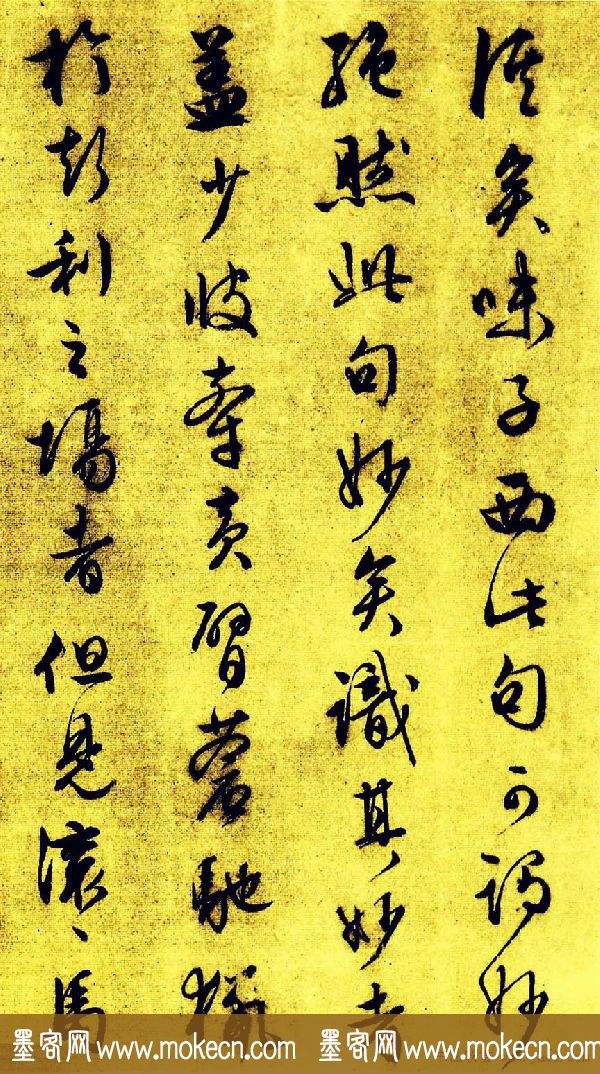 溪矣味子西此句可謂妙
絕然此句妙矣識其妙者
蓋少彼牽黃臂蒼馳獵
於聲利之場者但見滾々馬
墨客网 www.mokecn.com 墨客网 www.mokecn.com